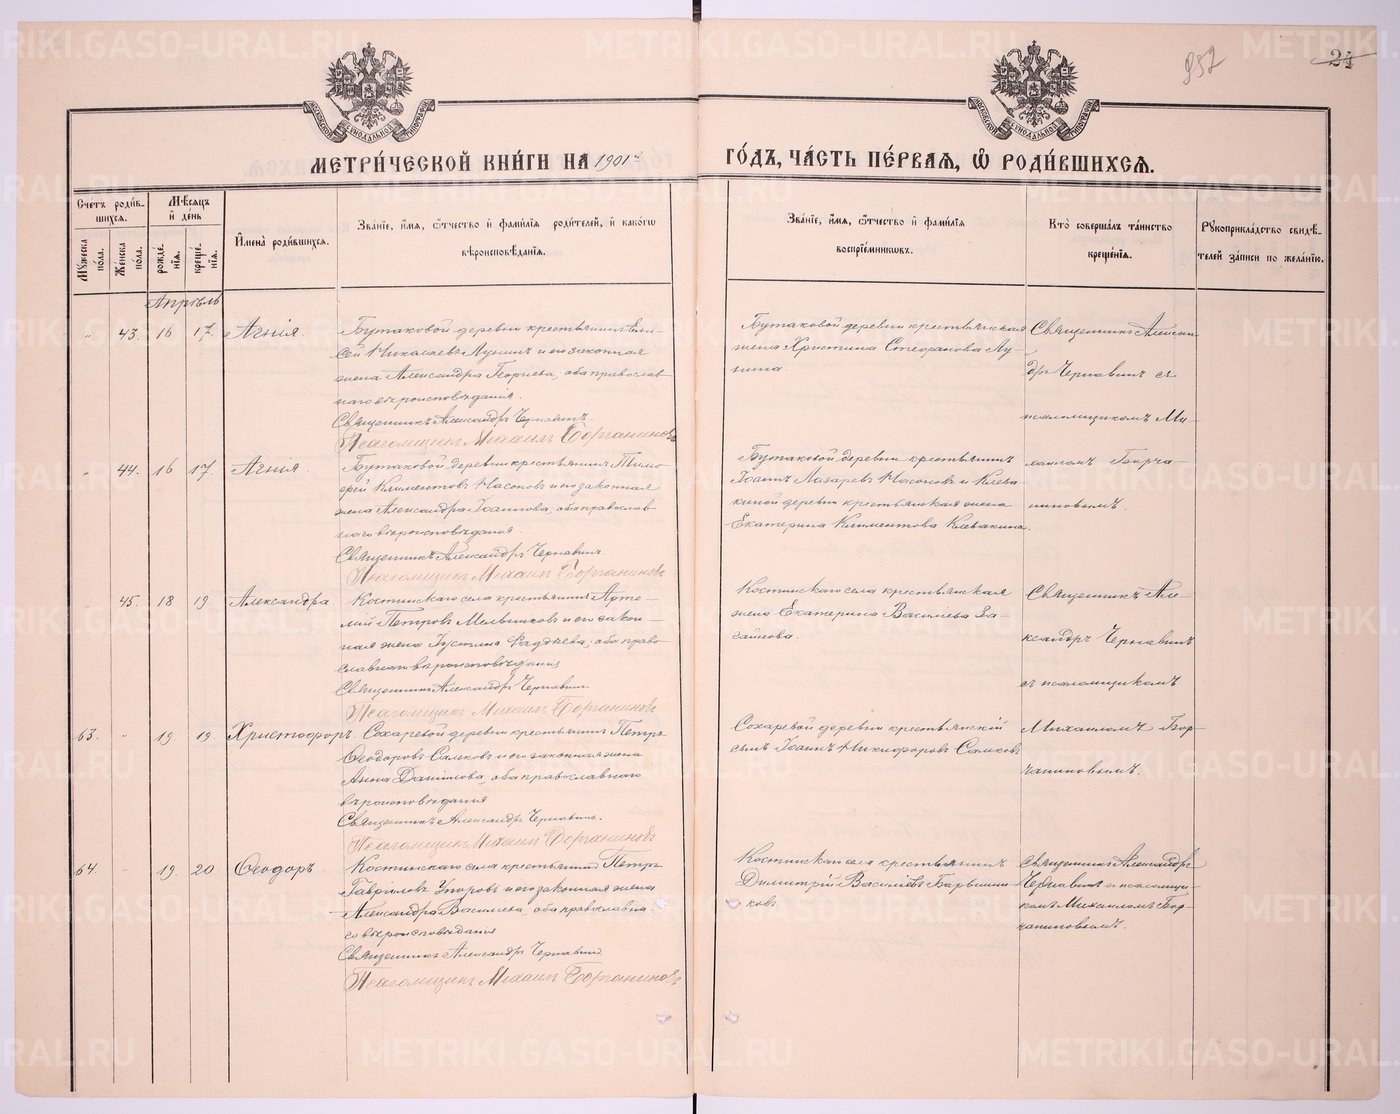 952
24
МЕТРИ́ЧЕСКОЙ КНИ́ГИ НА 1901 й ГО́ДЪ, ЧА́СТЬ ПЕ́РВАЯ, Ѽ РОДИ́ВШИХСѦ.
Счетъ роди́в-
шихся.
Му́жеска по́ла.
Же́нска по́ла.
Мѣ́сяцъ и де́нь
рожде́нія.
креще́нія.
И҆мена̀ роди́вшихся.
Зва́ніе, и҆́мя, ѻ҆́тчество и҆ фами́лія роди́телей, и҆ како́гѡ
вѣроисповѣ́данія.
Зва́ніе, и҆́мя, ѻ҆́тчество и҆ фами́лія
воспріе́мниковъ.
Кто̀ соверша́лъ та́инство
креще́нія.
Рꙋкоприкла́дство свидѣ́-
телей за́писи по жела́нію.
Апрѣль
" 43. 16 17. Агнія.
Бутаковой деревни крестьянинъ Елис-
сей Николаевъ Лунинъ и его законная
жена Александра Георгіева, оба православ-
наго вѣроисповѣданія.
Священникъ Александръ Чернавинъ.
Псаломщикъ Михаилъ Борчаниновъ
Бутаковой деревни крестьянская
жена Христина Стефанова Лу-
нина.
Священникъ Алексан
дръ Чернавинъ съ
псаломщикомъ Ми-
" 44. 16 17. Агнія.
Бутаковой деревни крестьянинъ Тимо-
фей Климентовъ Насоновъ и его законная
жена Александра Іоаннова, оба православ-
наго вѣроисповѣданія.
Священникъ Александръ Чернавинъ.
Псаломщикъ Михаилъ Борчаниновъ
Бутаковой деревни крестьянинъ
Іоаннъ Лазаревъ Насоновъ и Клева-
киной деревни крестьянская жена
Екатерина Климентова Клевакина.
хаиломъ Борча-
ниновымъ.
45. 18 19. Александра
Костинскаго села крестьянинъ Арте-
мій Петровъ Мельниковъ и его закон-
ная жена Іустина Фаддѣева, оба право-
славнаго вѣроисповѣданія
Священникъ Александръ Чернавинъ.
Псаломщикъ Михаилъ Борчаниновъ
Костинскаго села крестьянская
жена Екатерина Василіева За-
гайнова.
Священникъ Але-
ксандръ Чернавинъ
съ псаломщикомъ
63. " 19. 19. Христофоръ.
Сохаревой деревни крестьянинъ Петръ
Ѳеодоровъ Самковъ и его законная жена
Анна Даніилова, оба православнаго
вѣроисповѣданія
Священникъ Александръ Чернавинъ.
Псаломщикъ Михаилъ Борчаниновъ
Сохаревой деревни крестьянскій
сынъ Іоаннъ Никифоровъ Самковъ
Михаиломъ Бор-
чаниновымъ.
64. " 19. 20. Ѳеодоръ.
Костинскаго села крестьянинъ Петръ
Гавриловъ Упоровъ и его законная жена
Александра Василіева, оба православна-
го вѣроисповѣданія
Священникъ Александръ Чернавинъ
Псаломщикъ Михаилъ Борчаниновъ
Костинскаго села крестьянинъ
Димитрій Василіевъ Барышни-
ковъ
Священникъ Александръ
Чернавинъ и псаломщи-
комъ Михаиломъ Бор-
чаниновымъ.
METRIKI.GASO-URAL.RU